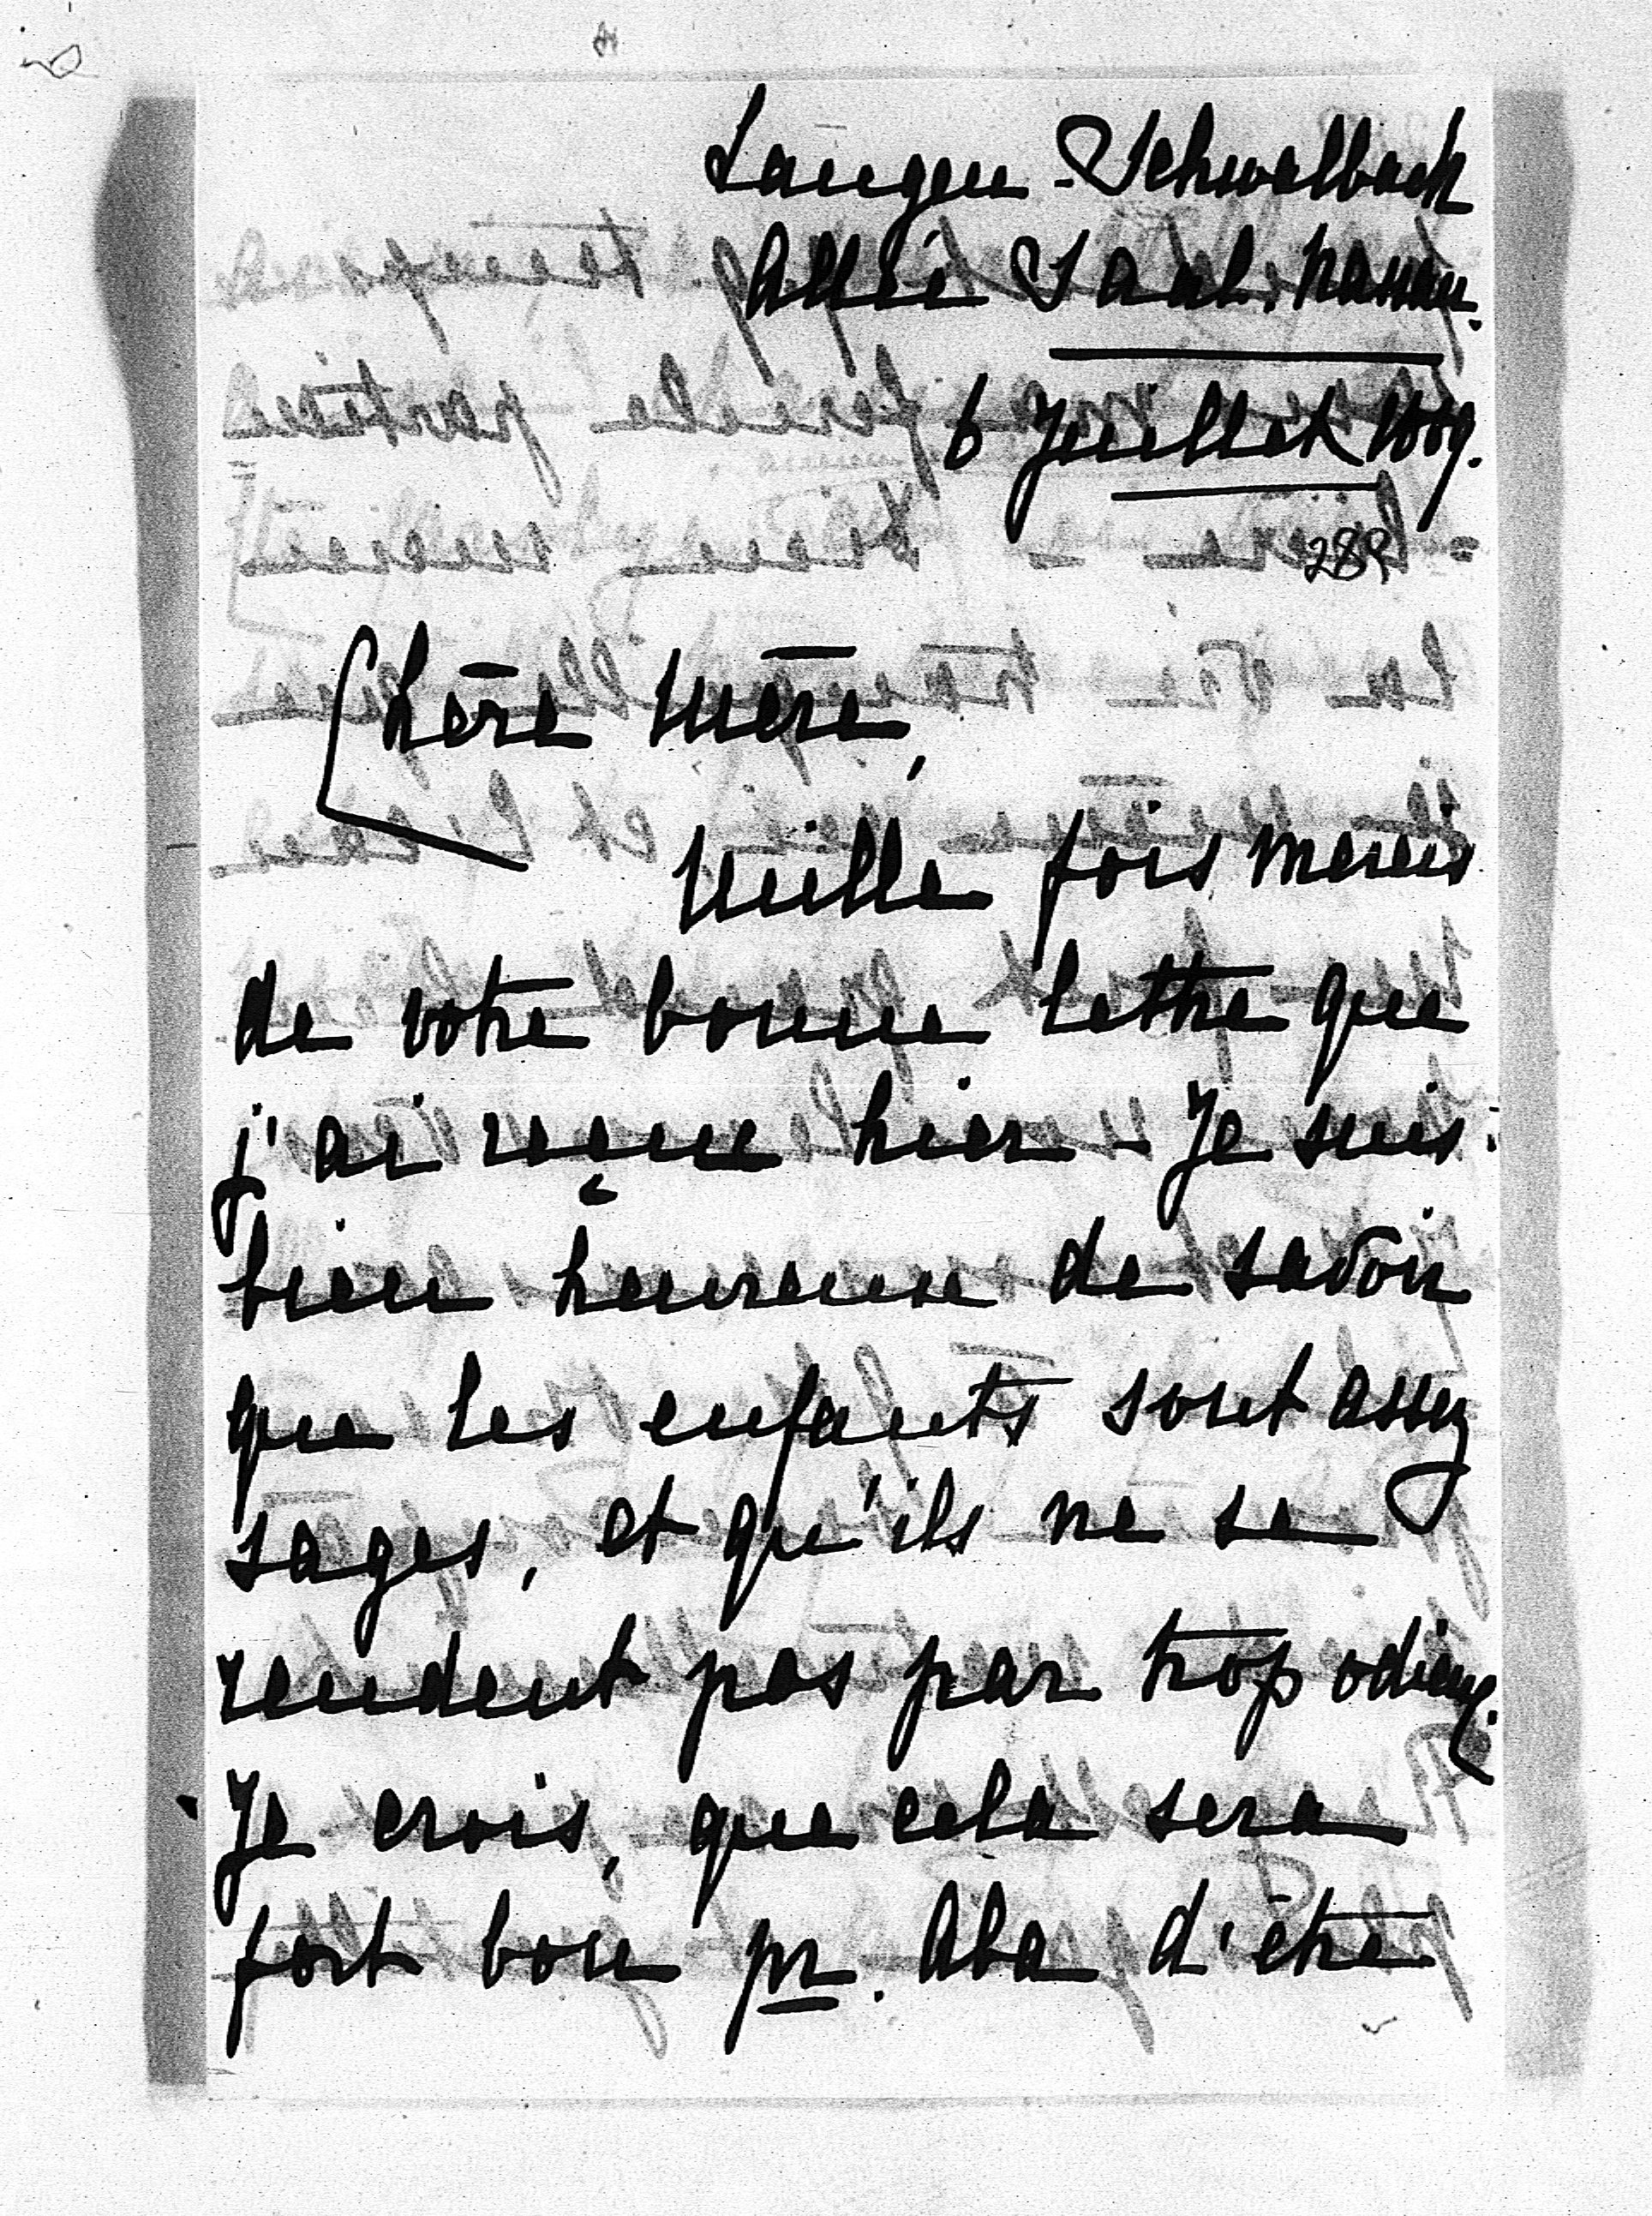 Langen-Schwalbach
Allée Saal. Nassau.
6 Juillet 1889.
289
Chère Mère,
Mille fois mercis
de votre bonne lettre que
j'ai reçue hier - Je suis
bien heureuse de savoir
que les enfants sont assez
sages, et qu'ils ne se
rendent pas par trop odieux.
Je crois, que cela sera
fort bon pr. Aba d'être